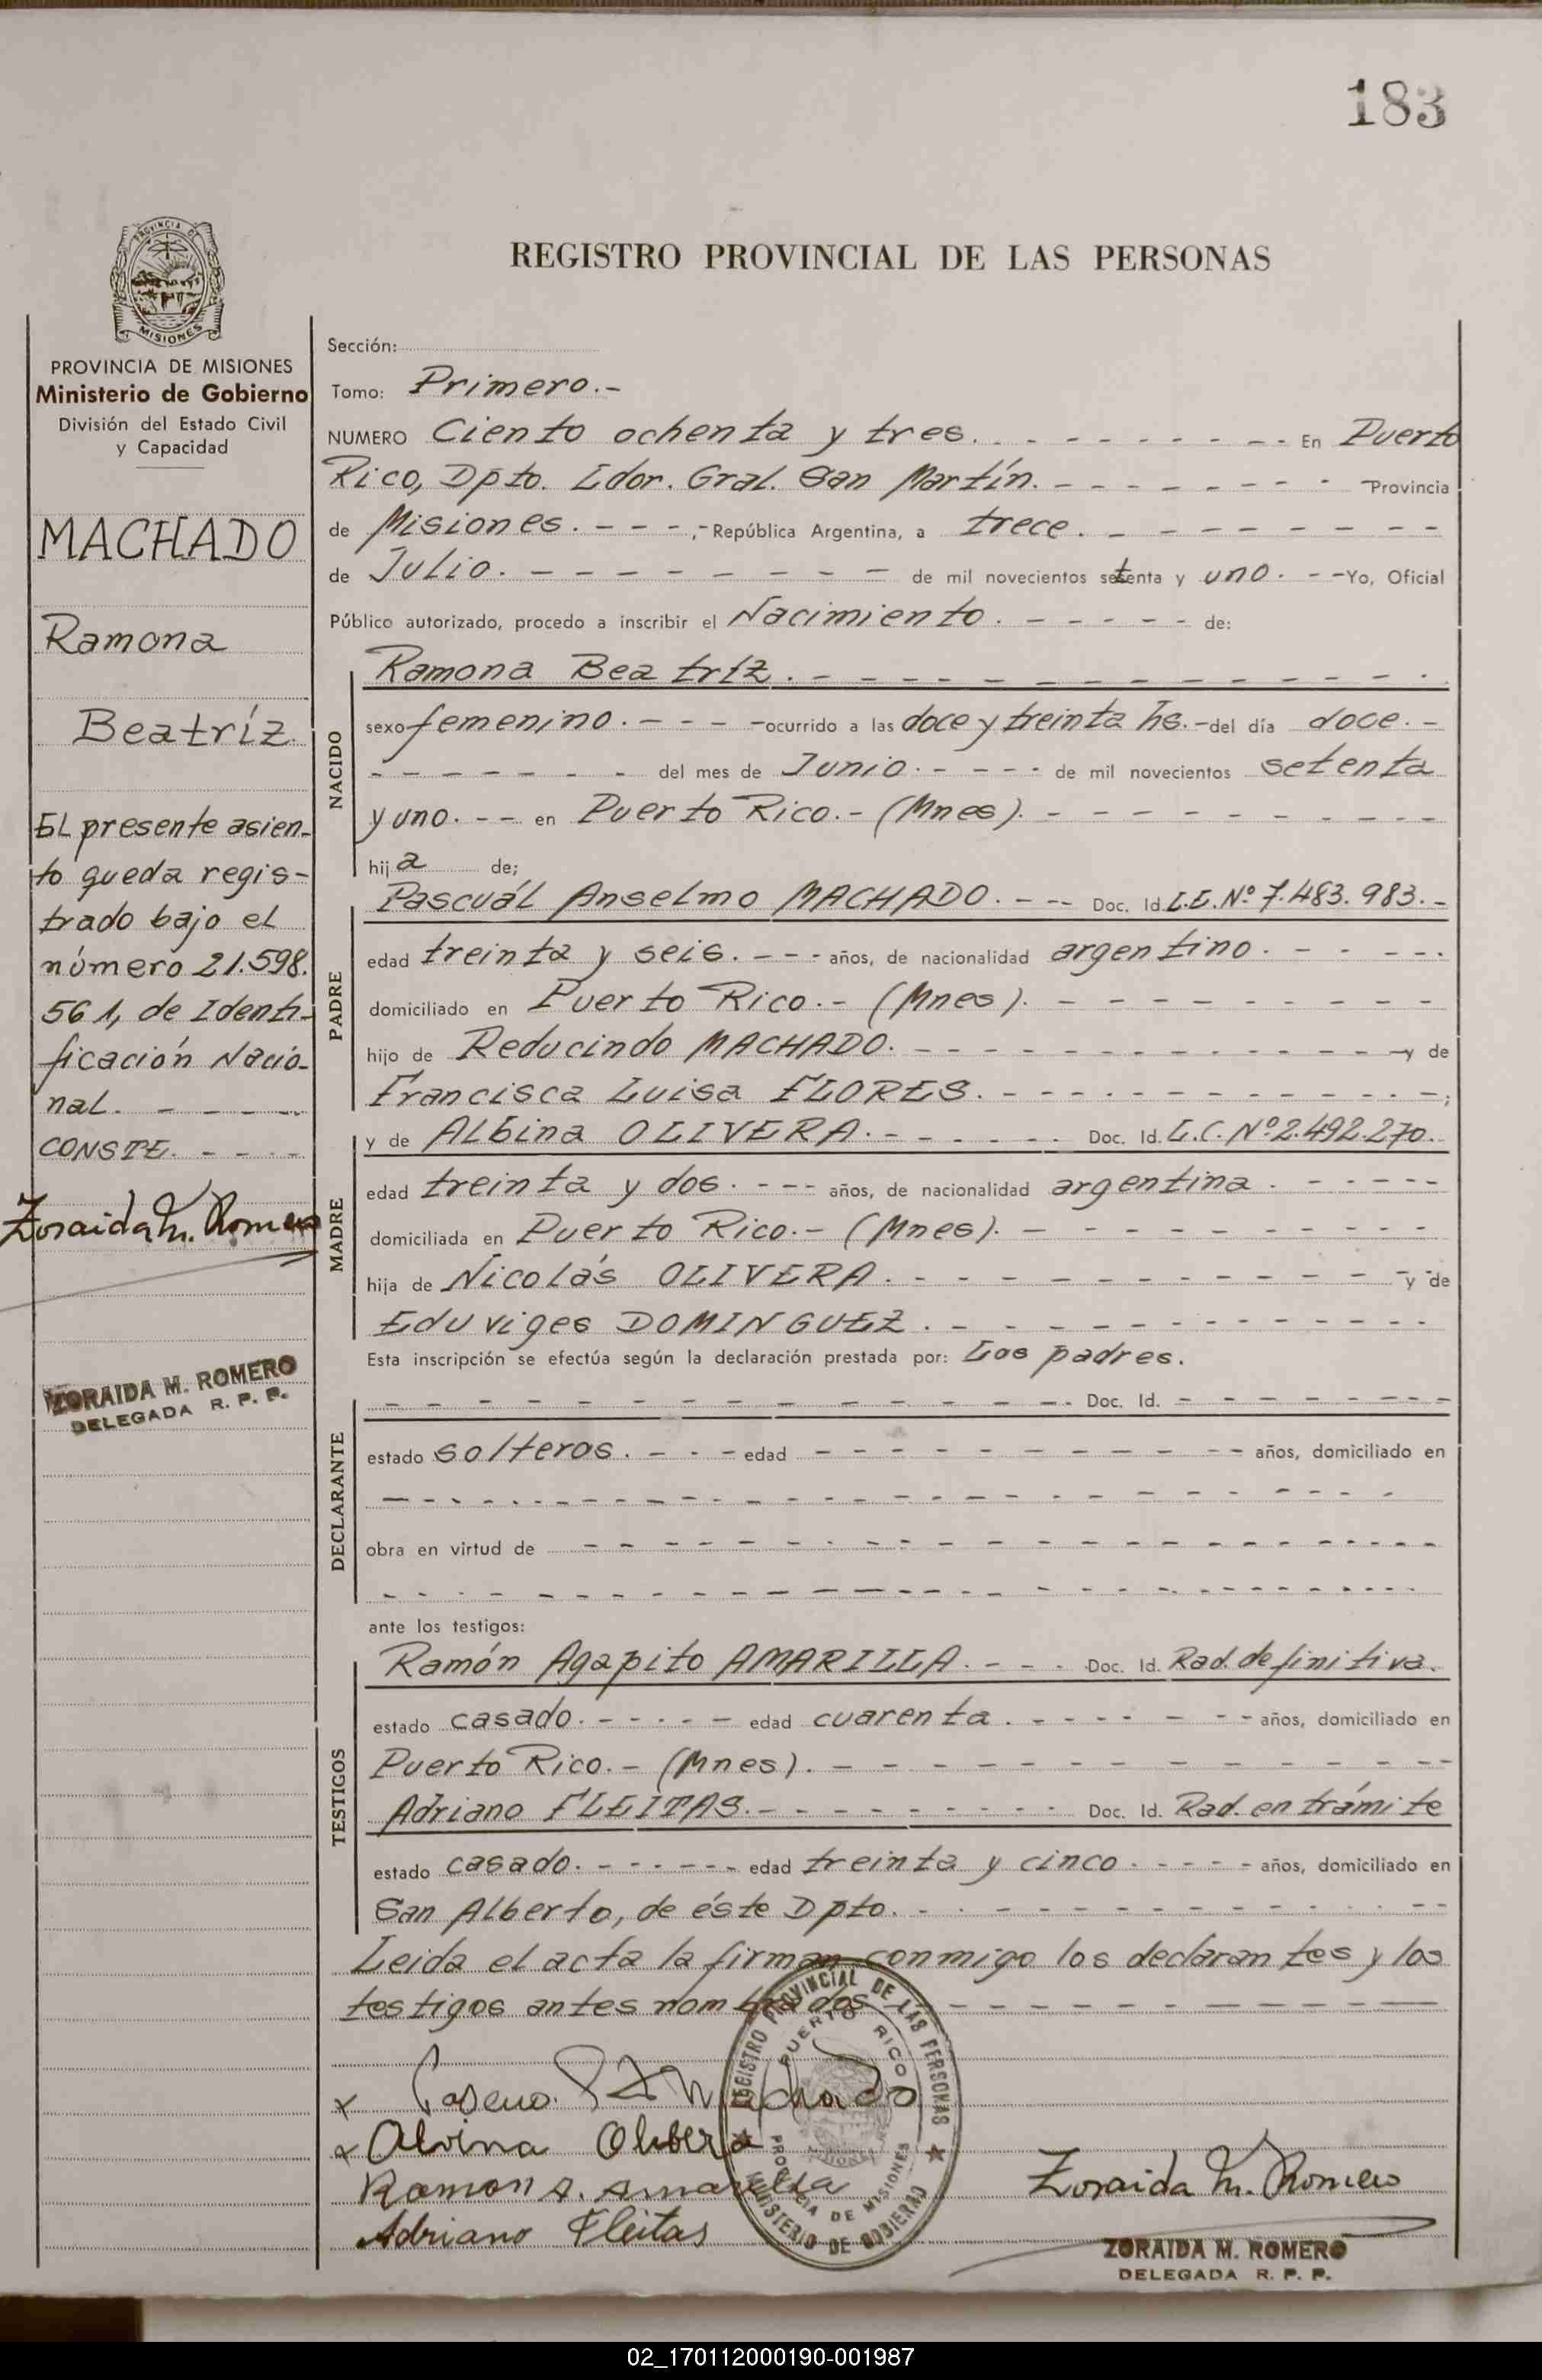 183
PROVINCIA DE
MISIONES
REGISTRO PROVINCIAL DE LAS PERSONAS
PROVINCIA DE MISIONES
Ministerio de Gobierno
División del Estado Civil
y Capacidad
MACHADO
Ramona
Beatríz.
El presente asien-
to queda regis-
trado bajo el
número 21.598.
561, de Identi-
ficación Nacio-
nal. - - - -
CONSTE. - - - -
Zoraida M. Romero
ZORAIDA M. ROMERO
DELEGADA R. P. P.
Sección:
Tomo: Primero.-
NUMERO Ciento ochenta y tres. - - - - - - - - En Puerto
Rico, Dpto. Ldor. Gral. San Martín. - - - - - - - - Provincia
de Misiones. - - - -, República Argentina, a trece. - - - - - - - -
de Julio. - - - - - - - - - de mil novecientos setenta y uno. - - Yo, Oficial
Público autorizado, procedo a inscribir el Nacimiento. - - - - - de:
NACIDO
Ramona Beatríz. - - - - - - - - - - - - -
sexo femenino. - - - - ocurrido a las doce y treinta hs. - del día doce. -
- - - - - - - del mes de Junio. - - - - de mil novecientos setenta
y uno. - - en Puerto Rico. - (Mnes). - - - - - - - - - -
hija de;
PADRE
Pascuál Anselmo MACHADO. - - - Doc. Id. L.E. Nº 7.483.983. -
edad treinta y seis. - - - años, de nacionalidad argentino. - - - - -
domiciliado en Puerto Rico. - (Mnes). - - - - - - - - -
hijo de Reducindo MACHADO. - - - - - - - - - - - - - y de
Francisca Luisa FLORES. - - - - - - - - - - - - -;
MADRE
y de Albina OLIVERA. - - - - - - Doc. Id. L.C. Nº 2.492.270.
edad treinta y dos. - - - años, de nacionalidad argentina. - - - - -
domiciliada en Puerto Rico. - (Mnes). - - - - - - - - -
hija de Nicolás OLIVERA. - - - - - - - - - - - - y de
Eduviges DOMINGUEZ. - - - - - - - - - - - - -
Esta inscripción se efectúa según la declaración prestada por: Los padres.
DECLARANTE
- - - - - - - - - - - - - - Doc. Id. - - - - - - - -
estado solteros. - - - edad - - - - - - - - - - años, domiciliado en
- - - - - - - - - - - - - - - - - - - - - -
obra en virtud de - - - - - - - - - - - - - - - - - -
- - - - - - - - - - - - - - - - - - - - - -
ante los testigos:
TESTIGOS
Ramón Agapito AMARILLA. - - - Doc. Id. Rad. definitiva.
estado casado. - - - - - edad cuarenta. - - - - - - - años, domiciliado en
Puerto Rico. - (Mnes). - - - - - - - - - - - - -
Adriano FLEITAS. - - - - - - - - Doc. Id. Rad. en trámite
estado casado. - - - - - - edad treinta y cinco. - - - - años, domiciliado en
San Alberto, de éste Dpto. - - - - - - - - - - - -
Leida el acta la firman conmigo los declarantes y los
testigos antes nombrados - - - - - - - - - - -
REGISTRO PROVINCIAL DE LAS PERSONAS
PUERTO RICO
PROVINCIA DE MISIONES
MINISTERIO DE GOBIERNO
x Machado
x Alvina Olibera
Ramon A. Amarilla
Adriano Fleitas
Zoraida M. Romero
ZORAIDA M. ROMERO
DELEGADA R. P. P.
02_170112000190-001987